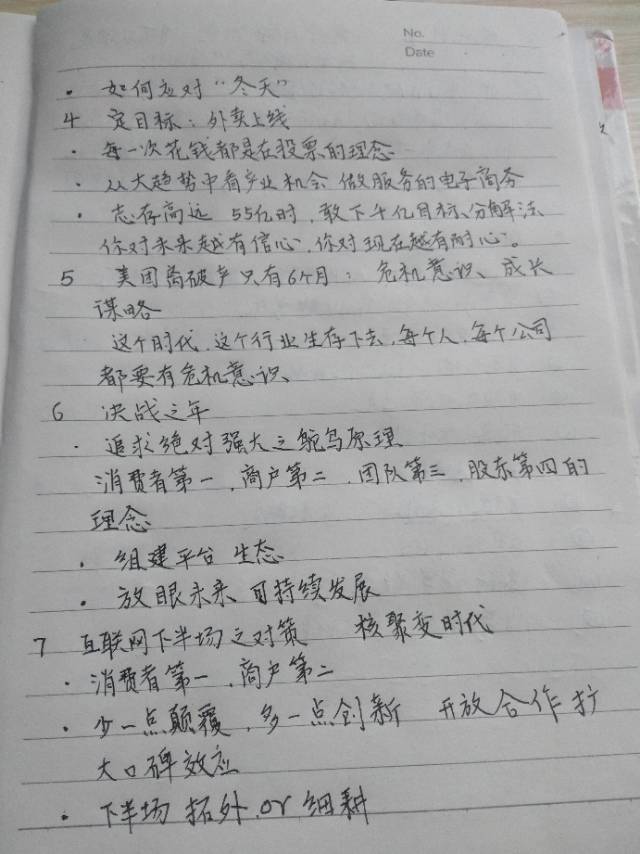 No.
Date
· 如何应对“冬天”
4 定目标：外卖上线
· 每一次花钱都是在投票的理念
· 从大趋势中看产业机会 做服务的电子商务
· 志存高远 55亿时，敢下千亿目标、分解法
你对未来越有信心，你对现在越有耐心。
5 美团离破产只有6个月：危机意识、成长
谋略
这个时代，这个行业生存下去，每个人，每个公司
都要有危机意识、
6 决战之年
· 追求绝对强大之鸵鸟原理
消费者第一，商户第二，团队第三，股东第四的
理念
· 组建平台 生态
· 放眼未来 可持续发展
7 互联网下半场之对策 核聚变时代
· 消费者第一，商户第二
· 少一点颠覆，多一点创新 开放合作扩
大口碑效应
· 下半场 拓外 or 细耕